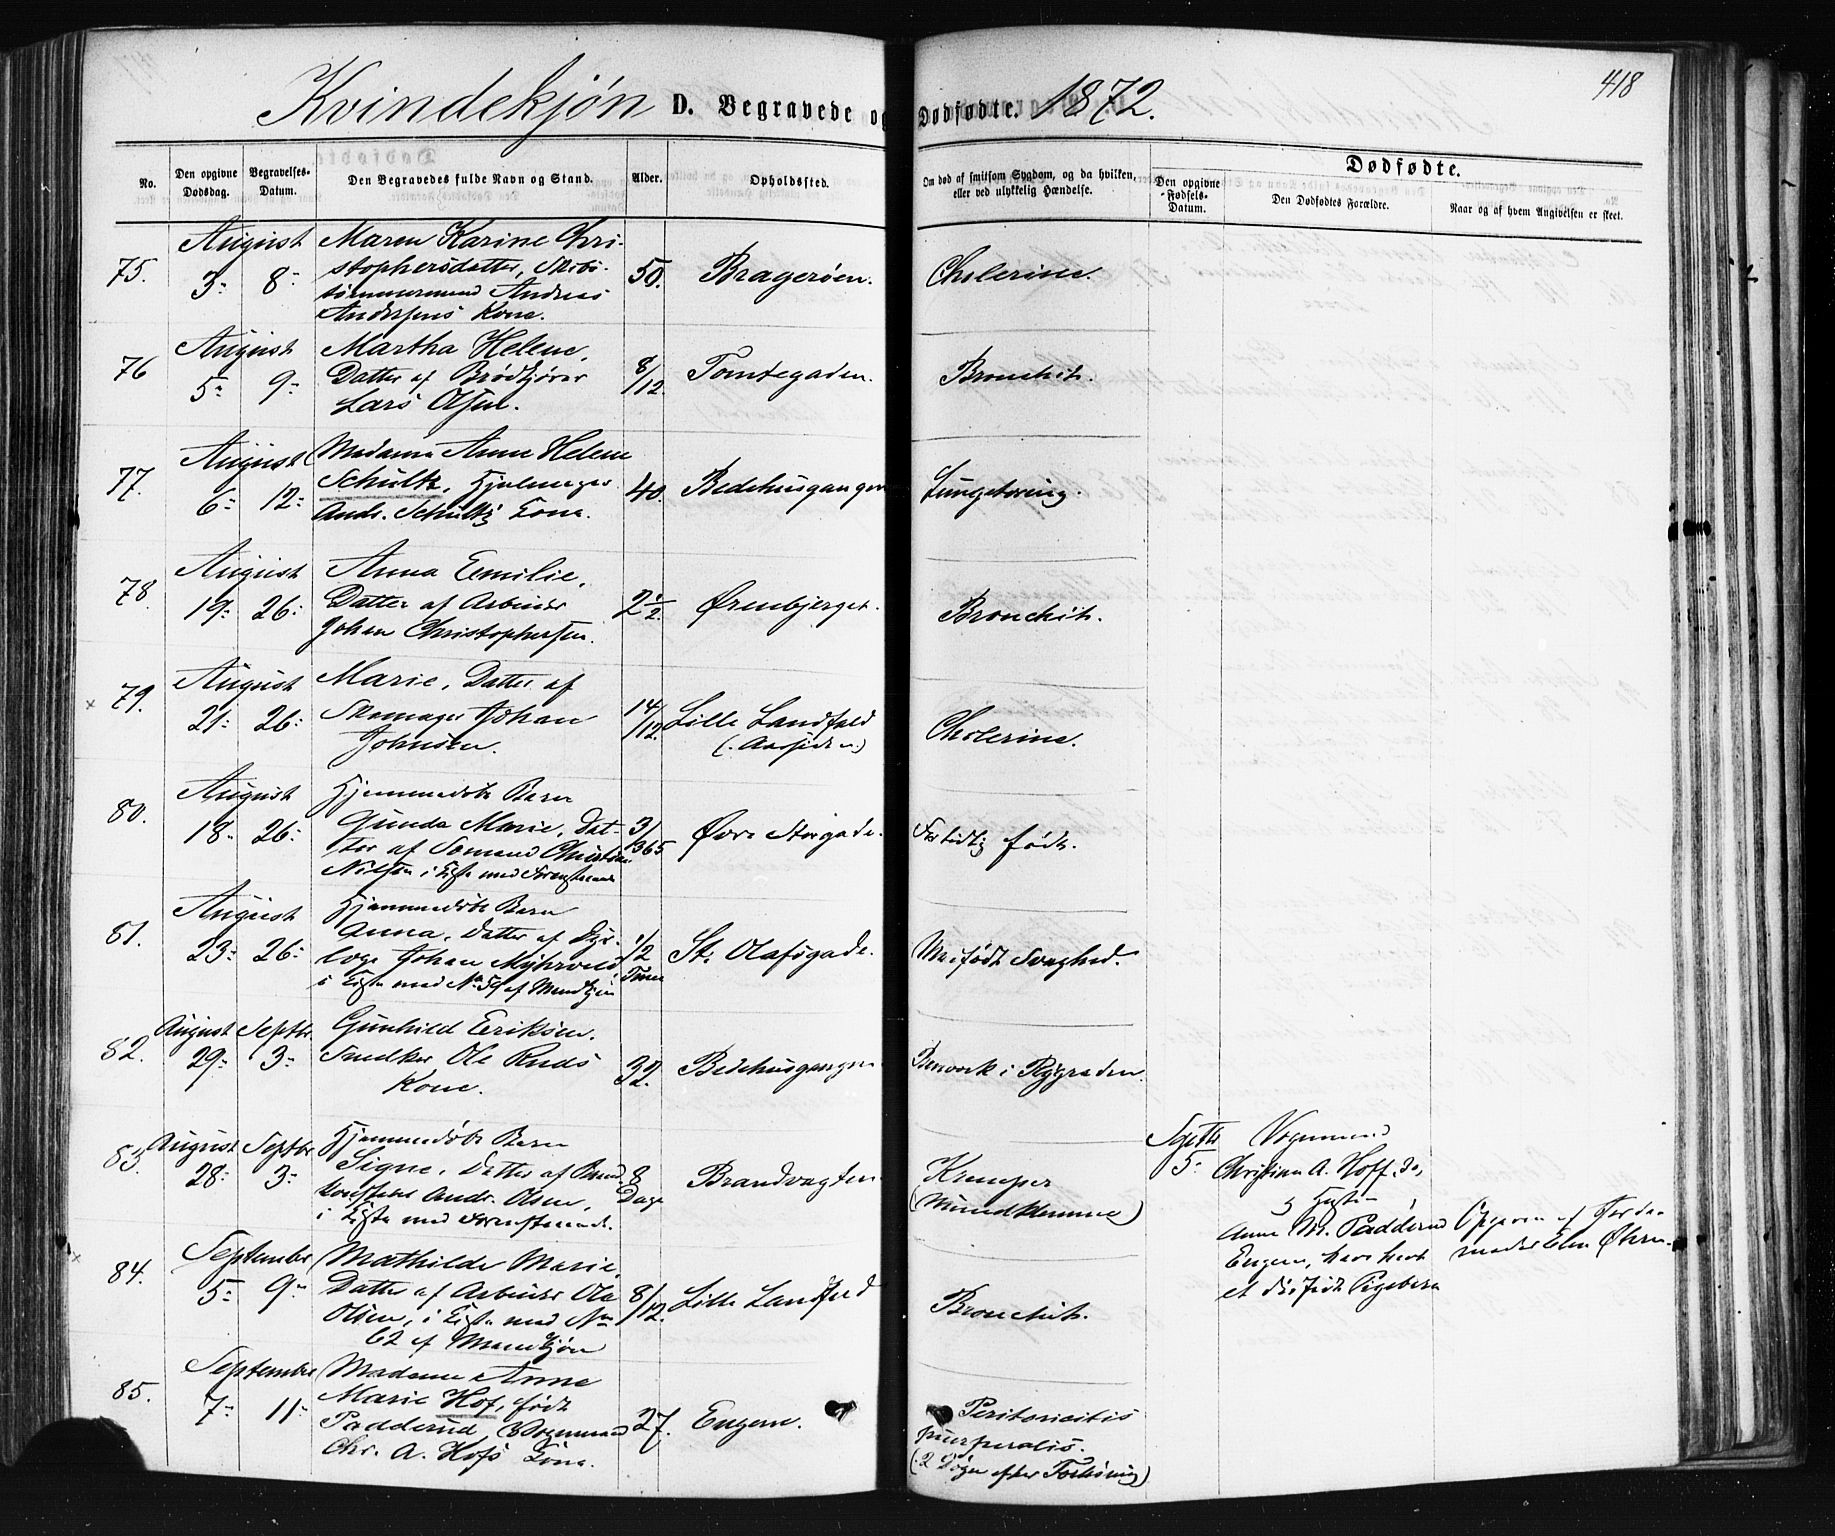 418
Kvindekjøn D. Begravede og Dødfødte. 1872.
No.
Den opgivne Dødsdag.
Begravelses-Datum.
Den Begravedes fulde Navn og Stand.
Alder.
Opholdssted.
Om død af smitsom Sygdom, og da hvilken,
eller ved ulykkelig Hændelse.
Dødfødte.
Den opgivne Fødsels-Datum.
Den Dødfødtes Forældre.
Naar og af hvem Angivelsen er skeet.
75. August 3 8 Maren Karine Chri-
stophersdatter, Skibs-
tømmermand Andreas
Andersens Kone.
50. Bragerøen. Cholerine.
76 August 5 9 Martha Helene,
Datter af Brødkjører
Lars Olsen.
8/12. Tomtegaden. Bronchit.
77. August 6 12 Madame Anne Helene
Schultz, Hjulmager
Andr. Schultz Kone.
40. Bedehusgangen Lungetæring.
78. August 19 26 Anna Emilie,
Datter af Arbeider
Johan Christophersen.
2 1/2 Ørenbjerget. Bronchit.
79. August 21 26 Marie, Datter af
Skomager Johan
Johnsen.
14/12. Lille Landfald
Cholerine.
80. August 18 26 Hjemmedøbt Barn
Gunda Marie, Dat-
ter af Sømand Christian
Nilsen i Kiste med Forenstaaende
3/365 Øvre Storgade. For tidlig født.
81. August 23 26 Hjemmedøbt Barn
Anna, Datter af
Johan Myhrvold
i Kiste med No 59 af Mandkjøn
1/2 Time St. Olafsgade. Medfødt Svaghed.
82. August 29 Septbr 3 Gunhild Eriksen.
Snedker Ole Ruds
Kone.
32. Bedehusgangen Benværk i Rygraden.
83. August 28 Septbr 3 Hjemmedøbt Barn
Signe, Datter af
Andr. Olsen,
i Kiste med Forenstaaende.
8 Dage Brandvagten Kramper
(Mundklemme)
Septbr 5 Vognmand
Christian A. Hoff
og Hustru
Anne M. Padderud
Engene, have havt
et dødfødt Pigebarn
Opgiven af Jorde-
moder Elen Øhrn.
84. September 5 9 Mathilde Marie,
Datter af Arbeider Ole
Olsen, i Kiste med No
62 af Mandkjøn
8/12. Lille Landfald Bronchit.
85. September 7 11 Madame Anne
Marie Hof, født
Padderud, Vognmand
Chr. A. Hofs Kone.
27. Engene. Peritonitis
puerperalis.
(2 Døgn efter Forløsning)